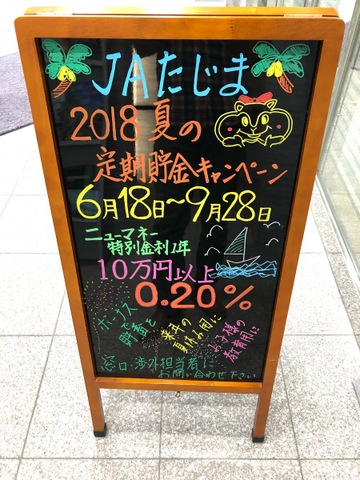 JAたじま
2018 夏の
定期貯金キャンペーン
6月18日〜9月28日
ニューマネー
特別金利1年
10万円以上
0.20%
ボーナス
で
貯蓄を
来年の
夏休み用に
お子様の
教育用に
窓口・渉外担当者に
お問い合わせ下さい